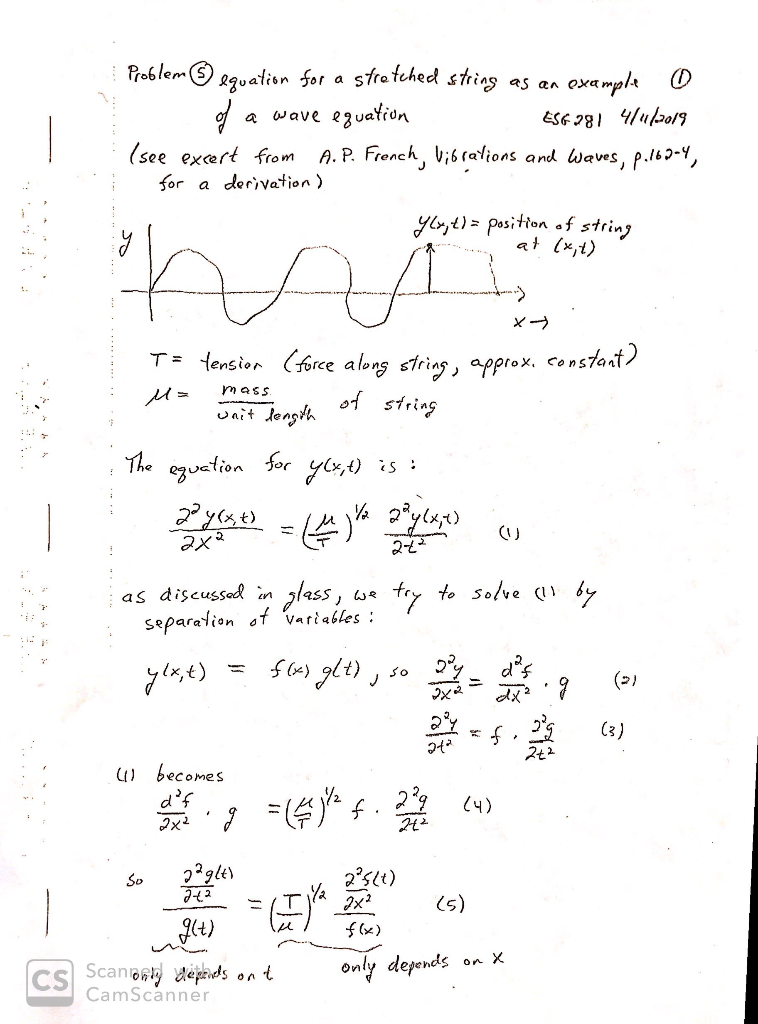 Problem ⑤ equation for a stretched string as an example ①
of a wave equation ESG 281 4/11/2019
(see excert from A. P. French, Vibrations and Waves, p.162-4,
for a derivation)
y(x,t) = position of string
y at (x,t)
x →
T = tension (force along string, approx. constant)
μ = mass / unit length of string
The equation for y(x,t) is :
∂²y(x,t)/∂x² = (μ/T)^1/2 ∂²y(x,t)/∂t² (1)
as discussed in glass, we try to solve (1) by
separation of variables :
y(x,t) = f(x) g(t), so ∂²y/∂x² = d²f/dx² · g (2)
∂²y/∂t² = f · ∂²g/∂t² (3)
(1) becomes
d²f/∂x² · g = (μ/T)^1/2 f · ∂²g/∂t² (4)
So ∂²g(t)/∂t² / g(t) = (T/μ)^1/2 ∂²f(t)/∂x² / f(x) (5)
only depends on t only depends on x
CS Scanned with
CamScanner